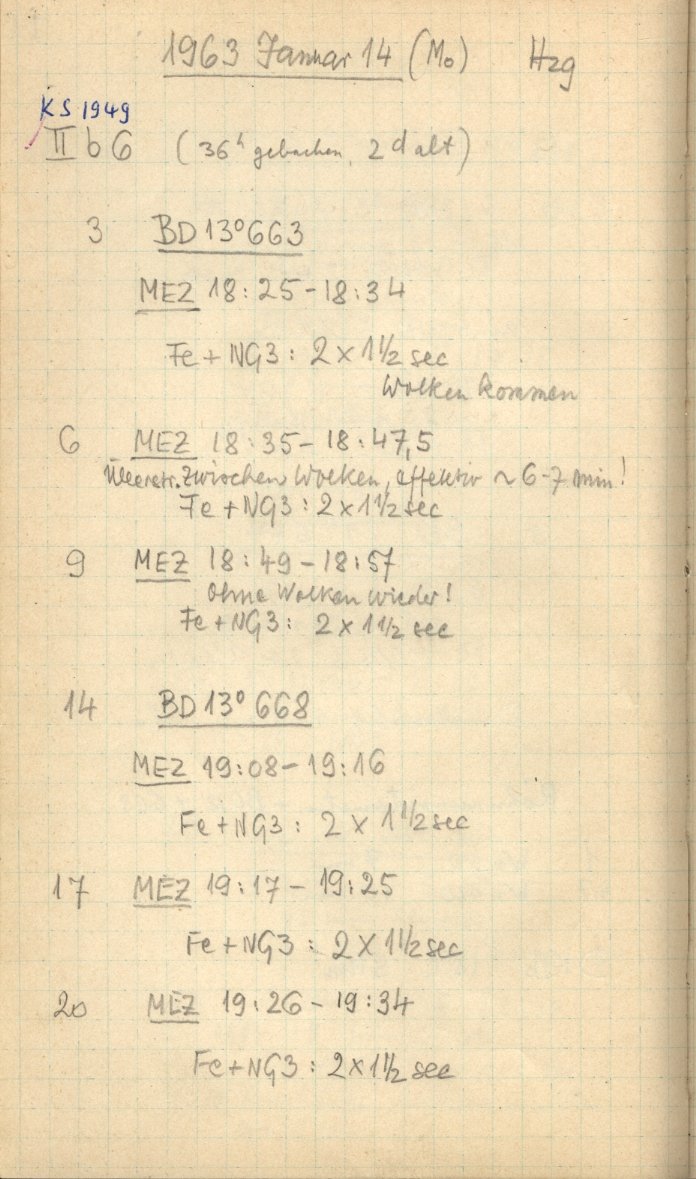 1963 Januar 14 (Mo) Hzg
KS 1949
II b 6 (36h gebacken, 2d alt)
3 BD 13°663
MEZ 18:25-18:34
Fe + NG3: 2 x 1 1/2 sec
Wolken kommen
6 MEZ 18:35-18:47,5
zwischen Wolken, effektiv ~ 6-7 min!
Fe + NG3: 2 x 1 1/2 sec
9 MEZ 18:49-18:57
Ohne Wolken wieder!
Fe + NG3: 2 x 1 1/2 sec
14 BD 13° 668
MEZ 19:08-19:16
Fe + NG3: 2 x 1 1/2 sec
17 MEZ 19:17-19:25
Fe + NG3: 2 x 1 1/2 sec
20 MEZ 19:26-19:34
Fe + NG3: 2 x 1 1/2 sec